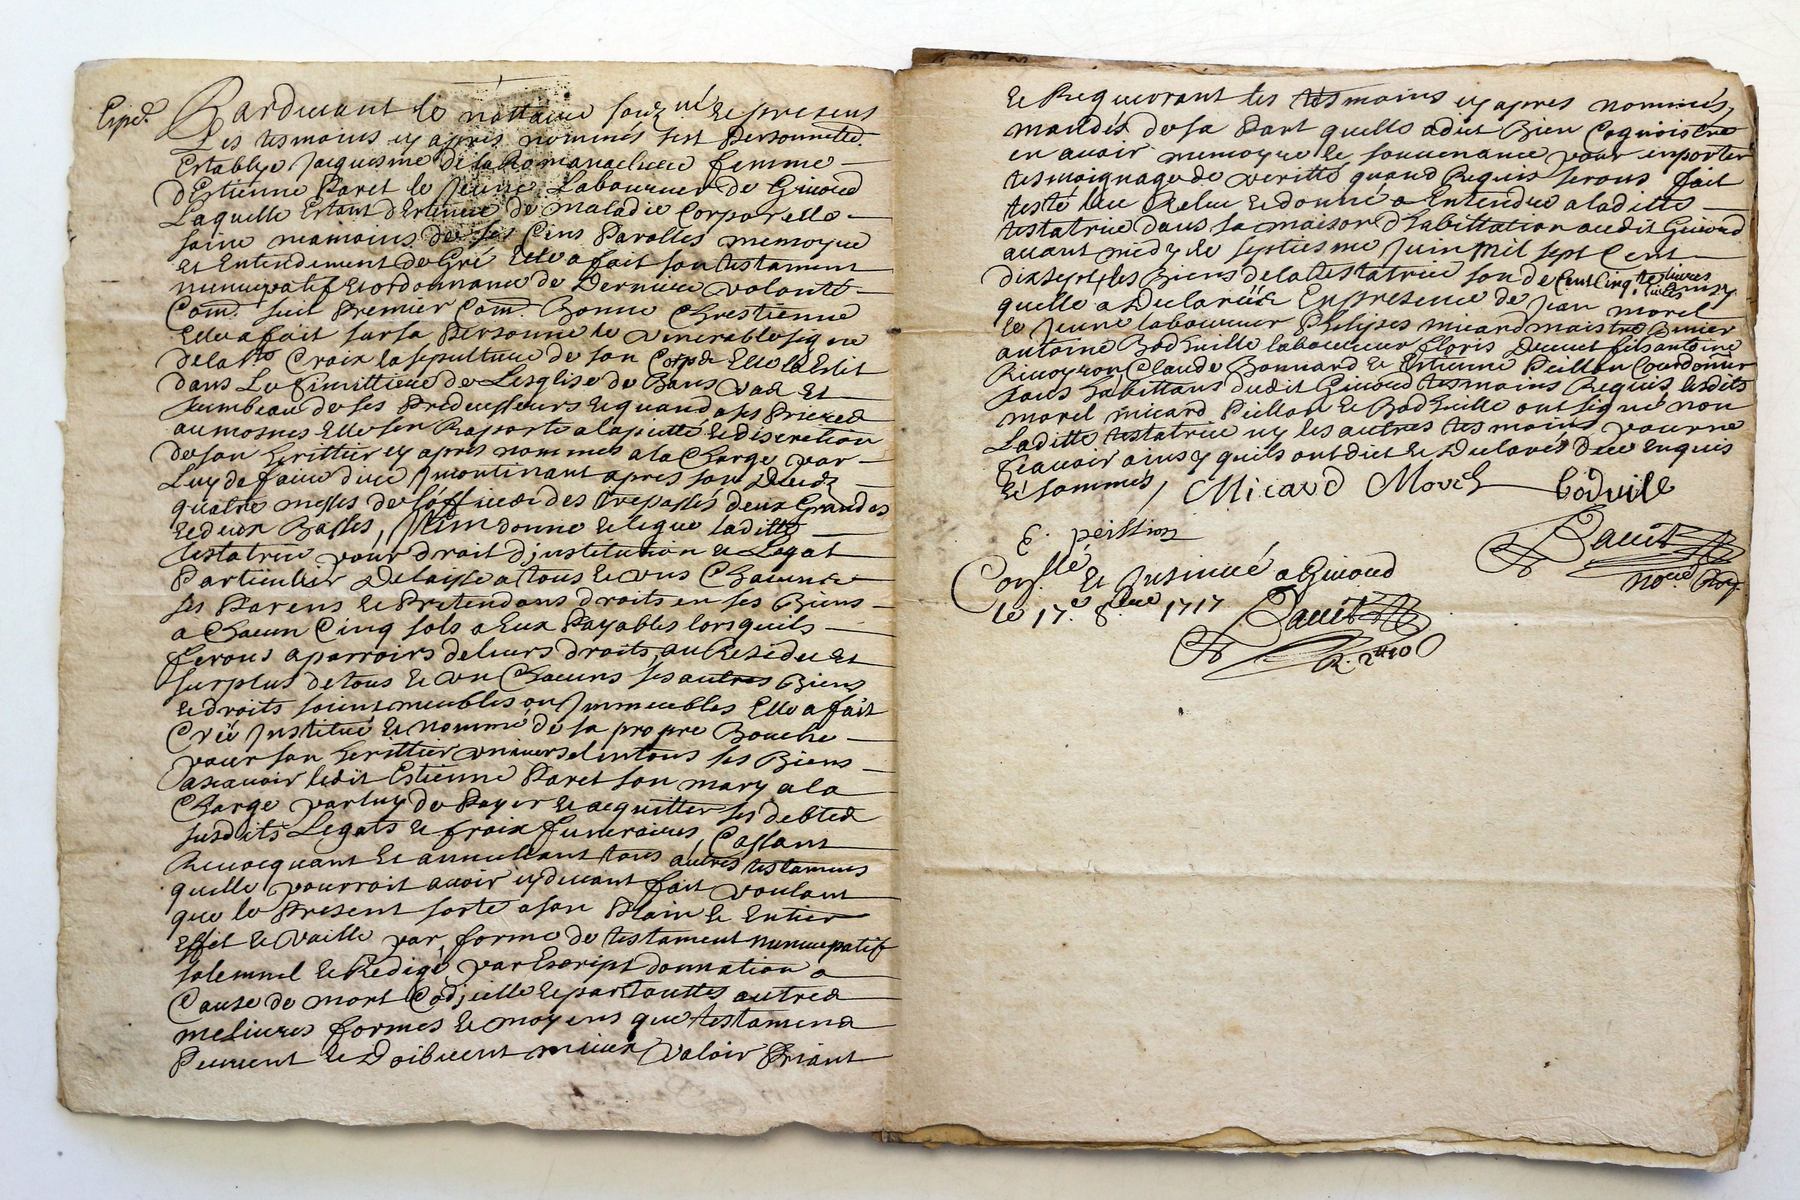 Expé.
Pardevant le nottaire souz.né et presens
Les tesmoins cy apres nommés s'est Personnelle.
Establye Jacquesme de la Romanaeliere femme
d'Estienne Paret le Jeune Laboureur de Givord
Laquelle Estant d'Estenue de maladie Corporelle
saine neamoins de ses Cens Parolles memoyre
et Entendement de Gré Elle a fait son testament
nuncupatif et ordonnance de Derniere volonté
Com.e suit Premier Com.e Bonne Chrestienne
Elle a fait sur sa Personne le venerable signe
de la Ste Croix la sepulture de son Corps Elle la Eslit
dans Le Cimittiere de Lesglise de Bans vas et
tumbeau de ses Predecesseurs et quand a ses Prieres
aumosnes Elle s'en Raporte a la pietté et discretion
de son heritier cy apres nommes a la Charge par
Luy de faire dire Jncontinant apres son Deceds
quatre messes de l'office des trepassés deux Grandes
et deux Basses, Jtem donne et legue laditte
testatrice pour droit d'institution et Legat
Particulier Delaisse a tous et uns Chacuns
ses Parens et Pretendans droits en ses Biens
a Chacun Cinq sols a Eux Payables lorsquils
feront aparroirs de leurs droits, au Residu et
surplus de tous et un Chacuns ses autres Biens
et droits soient meubles ou Jmmeubles Elle a fait
Créé Jnstitué et nommé de sa propre Bouche
pour son heritier universel en tous ses Biens
ascavoir ledit Estienne Paret son mary a la
Charge par luy de Payer et acquitter ses debtes
susdits Legats et fraix funeraires, Cassant
Revocquant et annullant tous autres testamens
quelle pourroit avoir cy devant fait voulant
que le Present sorte a son Plain et Entier
Effet et vaille par forme de testament nuncupatif
solemnel et Redigé par Escript donnation a
Cause de mort Codicille et par touttes autres
melieures formes et moyens que testamens
Peuvent et Doibvent mieux valoir Priant
et Requerant les tesmoins cy apres nommés,
mandés de sa Part quelle a dit Bien Cognoistre
en avoir memoyre et souvenance pour en porter
tesmoignage de veritté quand Requis seront fait
testé leu Releu et donné a Entendre a laditte
testatrice dans sa maison d'habittation audit Givord
avant midy le septiesme Juin mil sept Cent
dix sept, les Biens de la testatrice son de Cent Cinq.te livres
quelle a Declarée En presence de Jean morel
le Jeune laboureur Philipes micard maistre
antoine Bodveille laboureur floris fils antoine
Claude Bonnard et Estienne Peillon Courdonier
tous habittans dudit Givord tesmoins Requis lesdits
morel micard Peillon et Bodveille ont signé non
Laditte testatrice ny les autres tes moins pour ne
scavoir ainsy quils ont dict et Declaré Dece enquis
Et sommés / Micard Morel Bodveile
E. peillion
Con.llé Et Jnsinué a Givord
le 17.e 8bre 1717